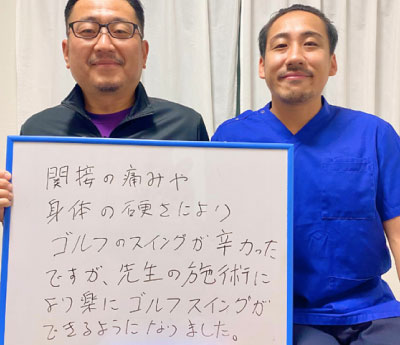 関接の痛みや
身体の硬さにより
ゴルフのスイングが辛かった
ですが、先生の施術に
より楽にゴルフスイングが
できるようになりました。